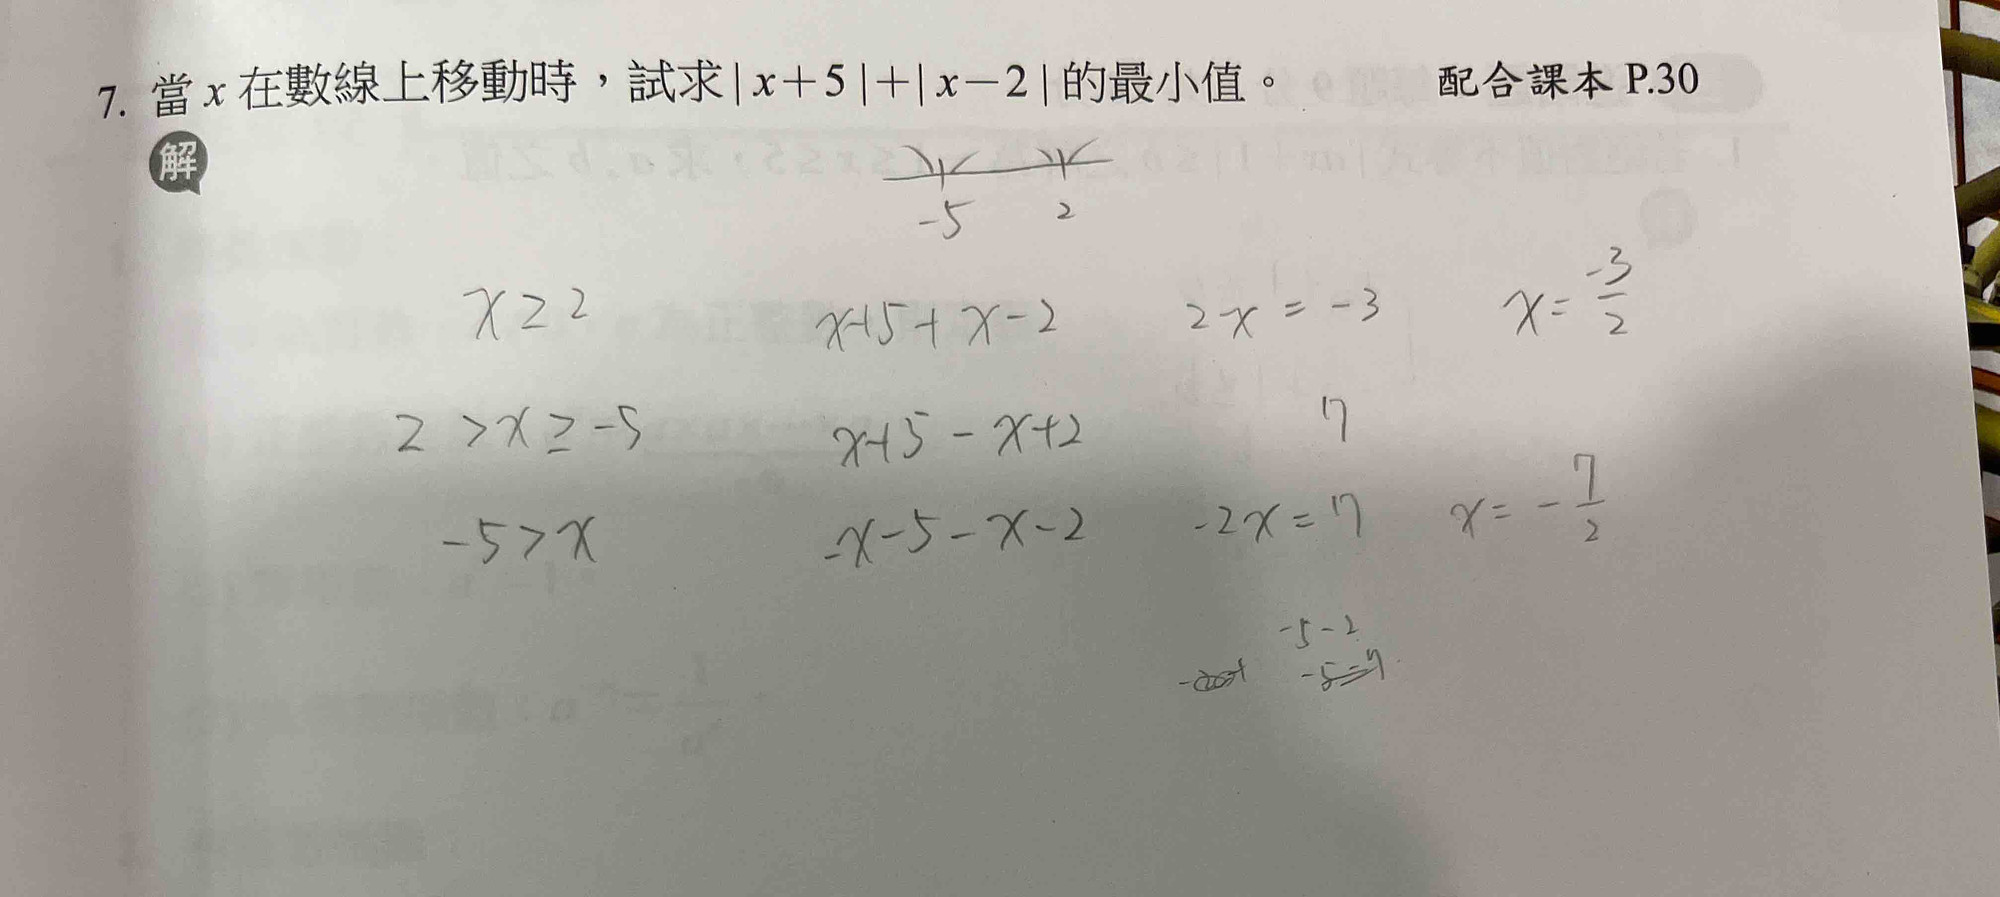 7. 當 x 在數線上移動時，試求 | x＋5 |＋| x－2 | 的最小值。 配合課本 P.30
解
-5 2
x ≥ 2 x+5+x-2 2x = -3 x = -3/2
2 > x ≥ -5 x+5-x+2 7
-5 > x -x-5-x-2 -2x = 7 x = -7/2
-5-2